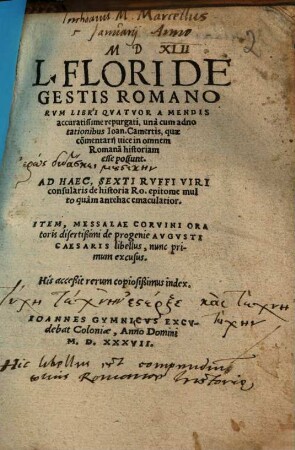 Inchoavit M. Marcellus
5 Januarij Anno
M D XLII
2
L. FLORI DE
GESTIS ROMANO
RVM LIBRI QVATVOR A MENDIS
accuratissime repurgati, unà cum adno
tationibus Ioan. Camertis, quæ
cõmentarij uice in omnem
Romanã historiam
esse possunt.
AD HAEC, SEXTI RVFFI VIRI
consularis de historia Ro. epitome mul
to quàm antehac emaculatior.
ITEM, MESSALAE CORVINI ORA
toris disertissimi de progenie AVGVSTI
CAESARIS libellus, nunc pri
mum excusus.
His accessit rerum copiosissimus index.
IOANNES GYMNICVS EXCV
debat Coloniæ, Anno Domini
M. D. XXXVII.
Hic libellus est compendium
totius Romanae historiae